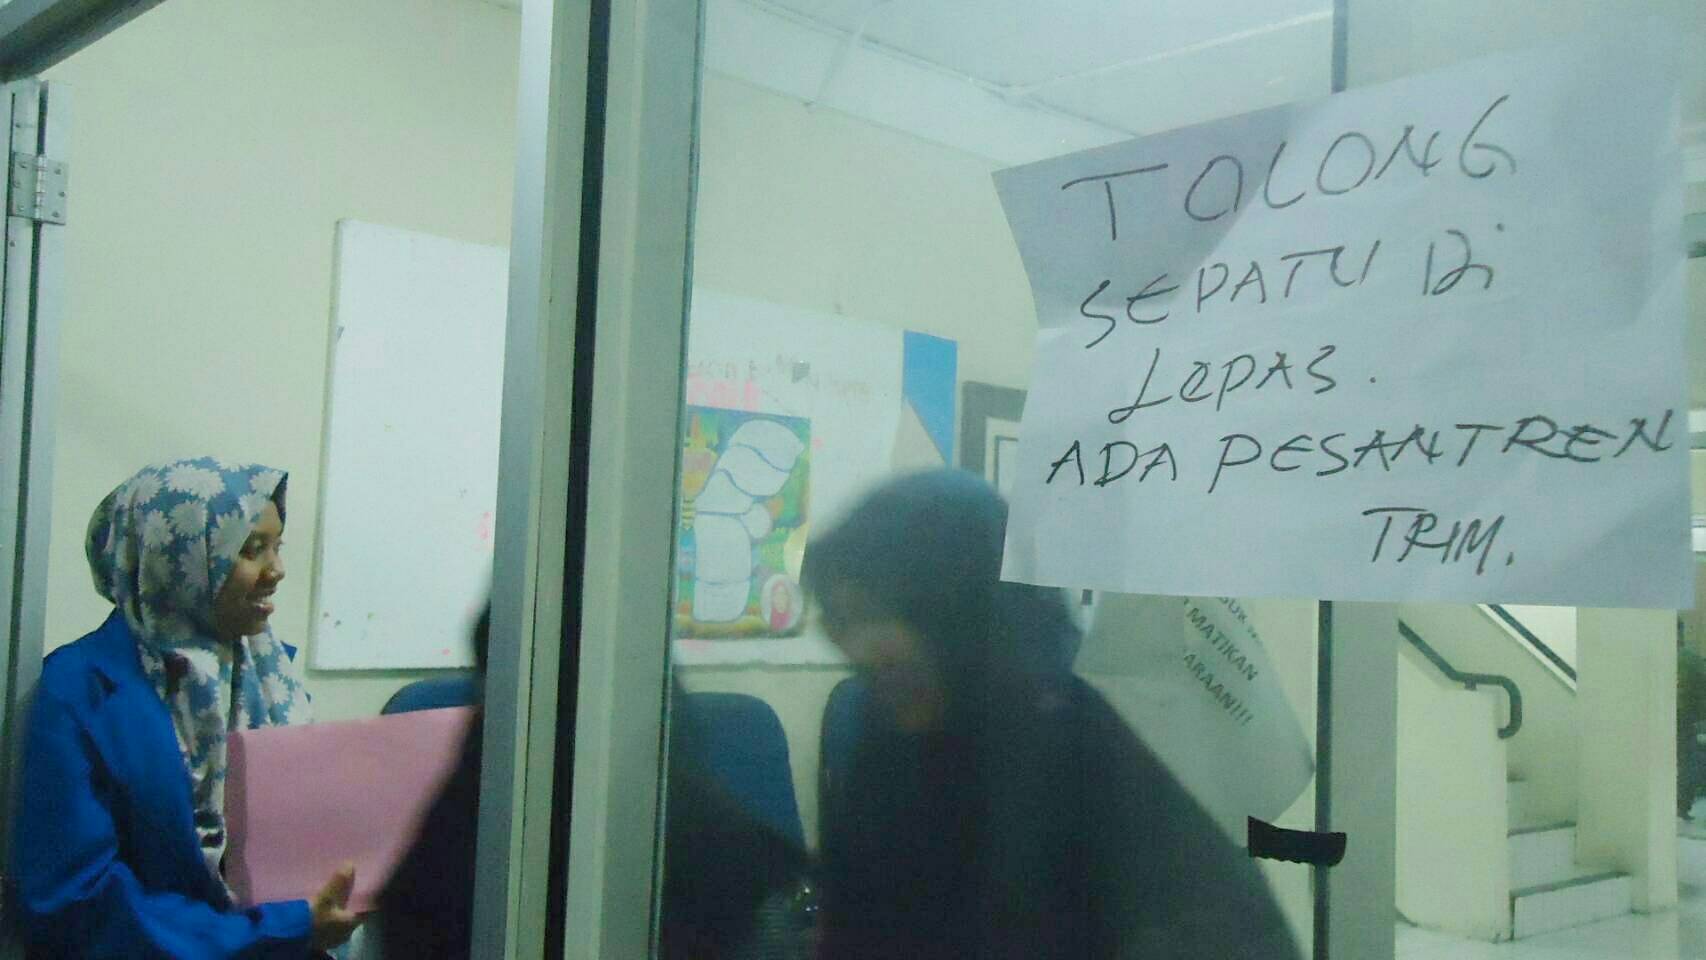 TOLONG
SEPATU Di
LEPAS.
ADA PESANTREN
TRIM.
MATIKAN
ARAAN!!!